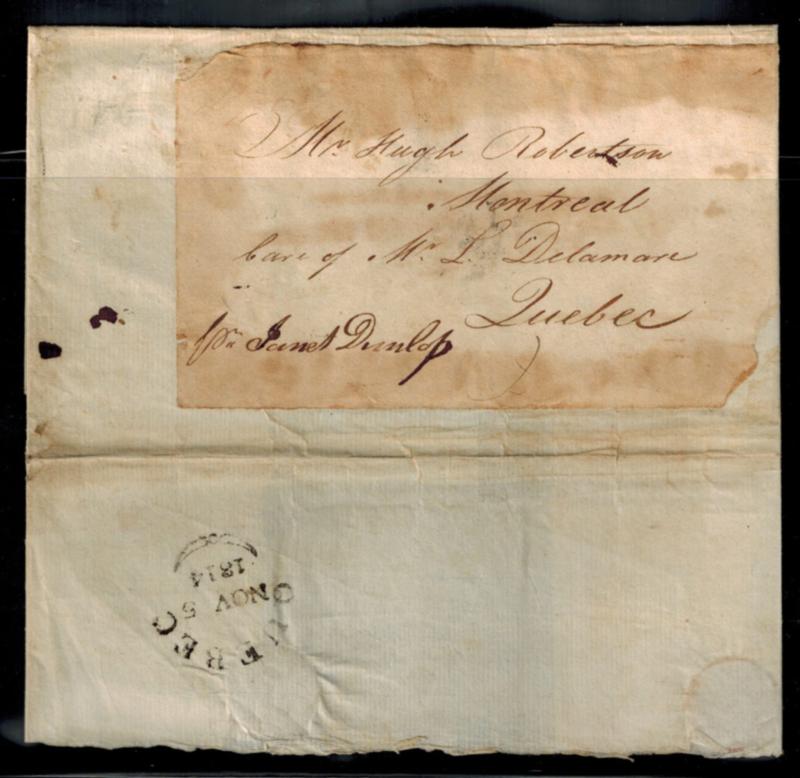 Mr. Hugh Robertson
Montreal
Care of Mr. L. Delamare
Quebec
pr. Janet Dunlop
QUEBEC
NOV 5
1814